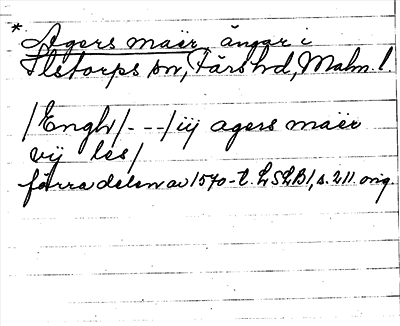 * Agers maër, ängar i
Ilstorps sn, Färs hd, Malm. l.
/Engh/ - - - /iij agers maër
vij les/
förra delen av 1570-t. LSLB1, s. 211 orig.